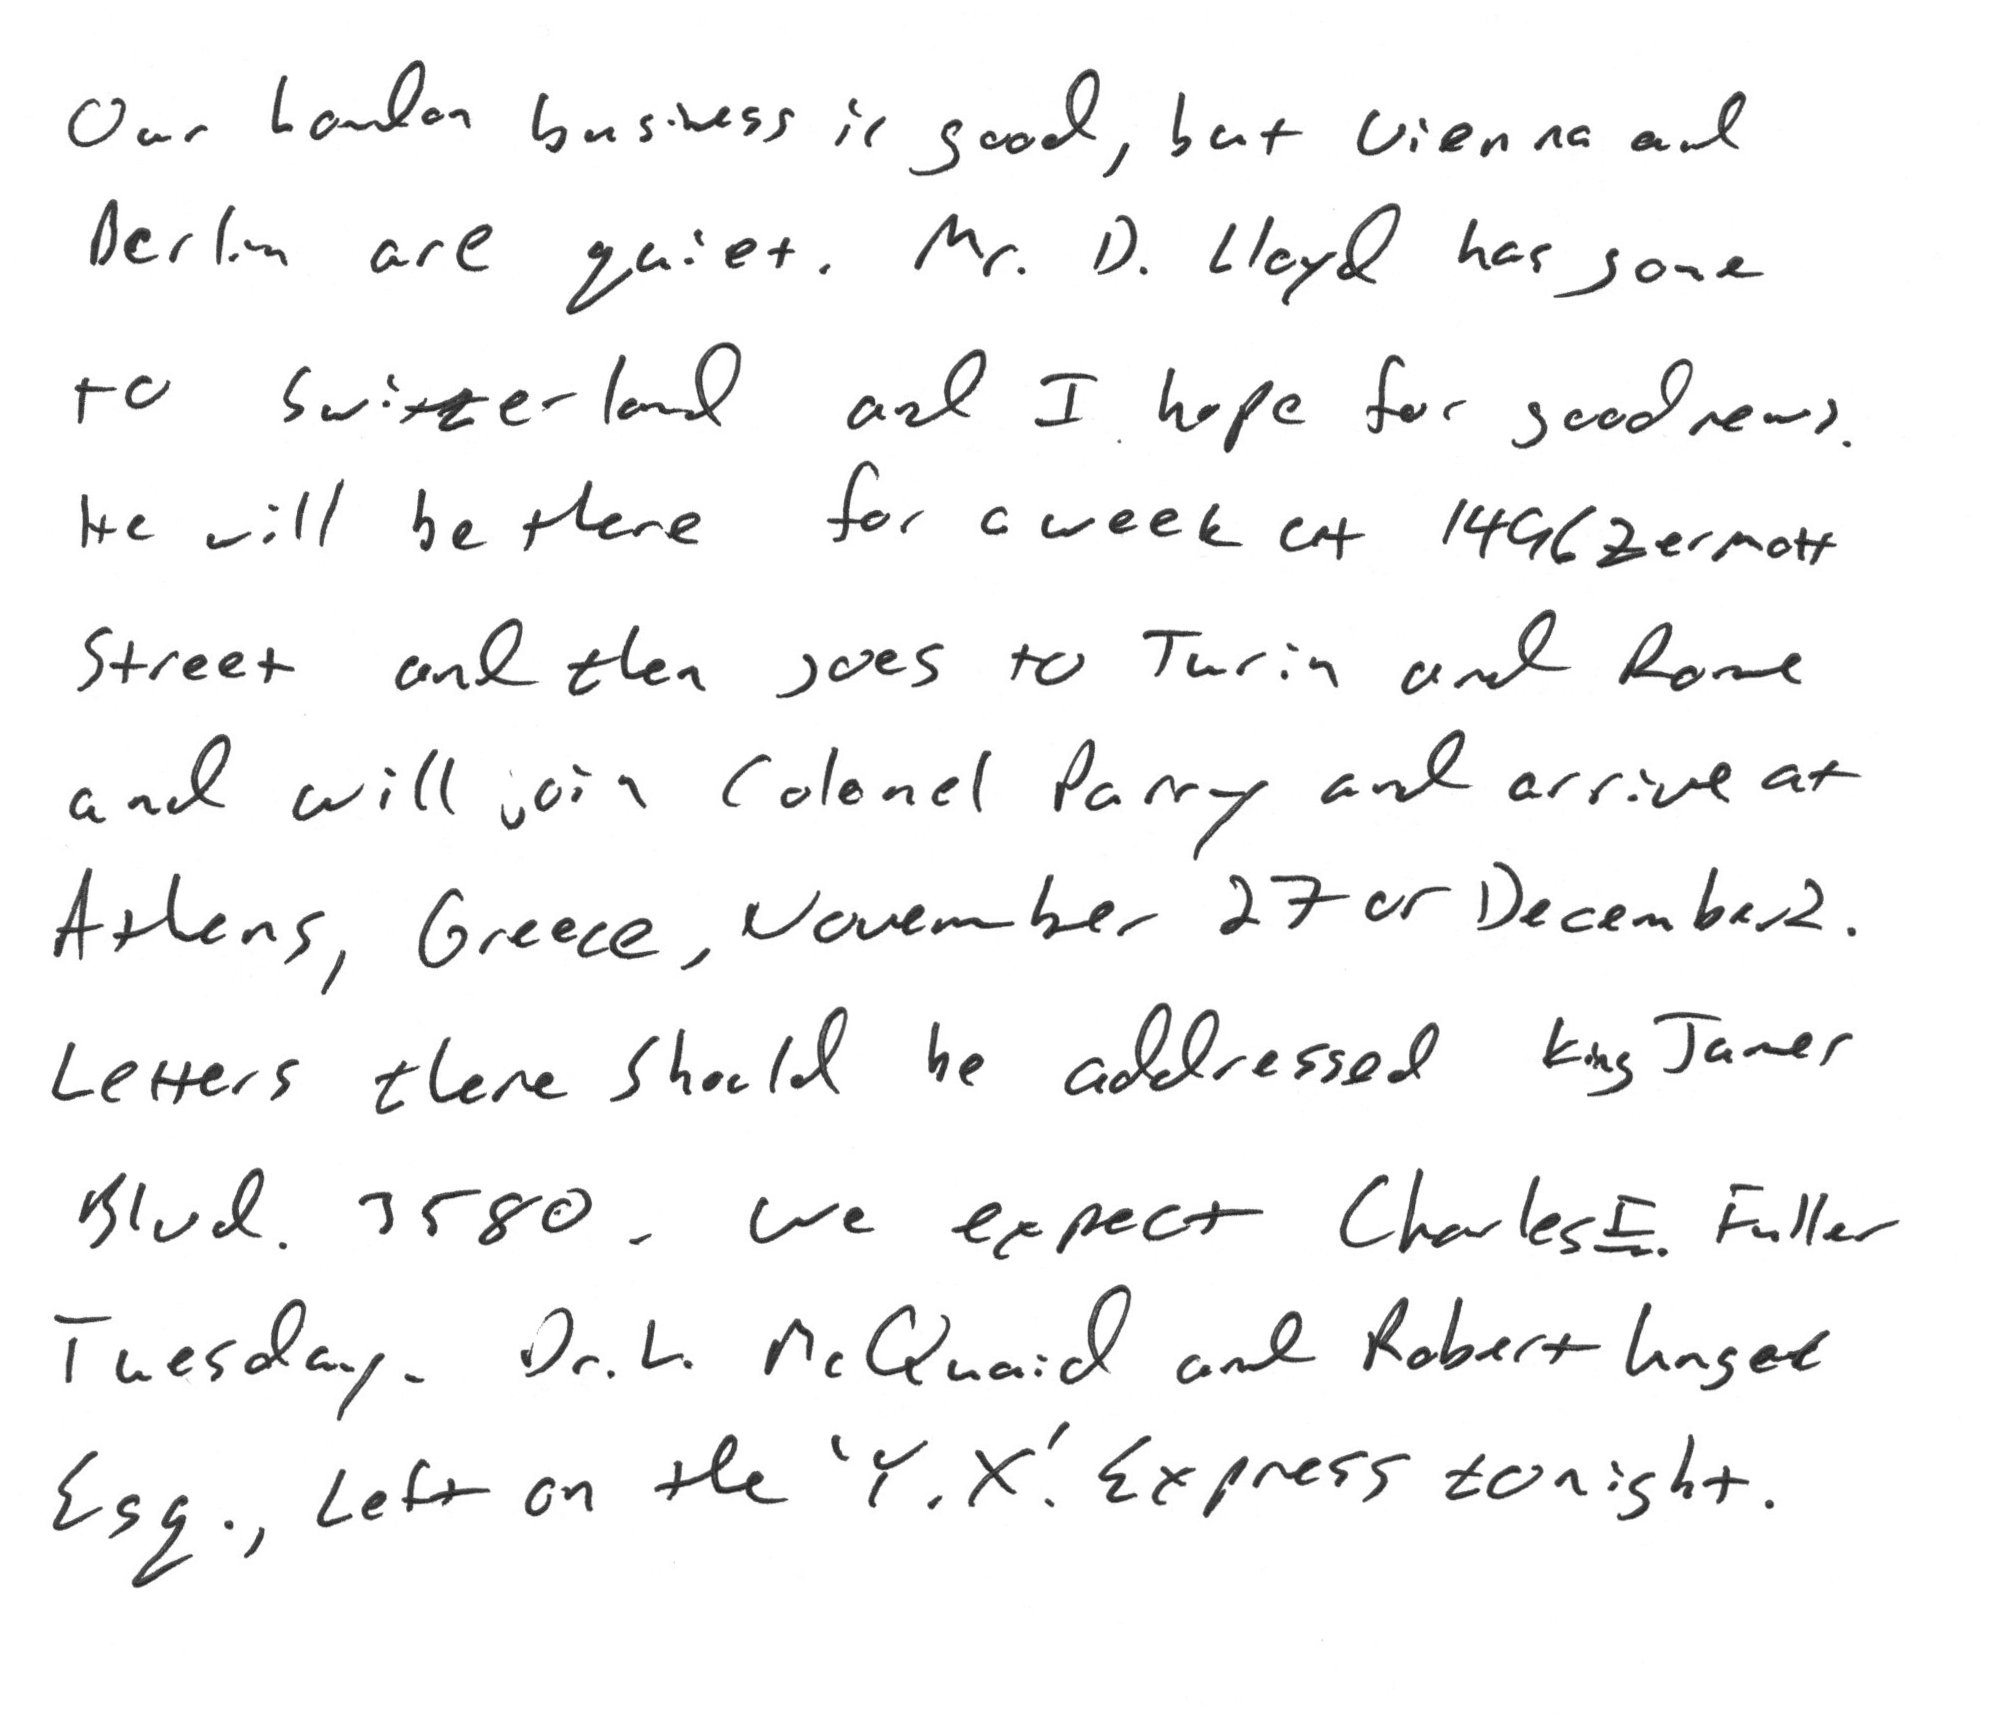 Our London business is good, but Vienna and
Berlin are quiet. Mr. D. Lloyd has gone
to Switzerland and I hope for good news.
He will be there for a week at 1496 Zermott
Street and then goes to Turin and Rome
and will join Colonel Parry and arrive at
Athens, Greece, November 27 or December 2.
Letters there should be addressed King James
Blvd. 3580. We expect Charles E. Fuller
Tuesday. Dr. L. McQuaid and Robert Unger
Esq., Left on the 'Y.X.' Express tonight.